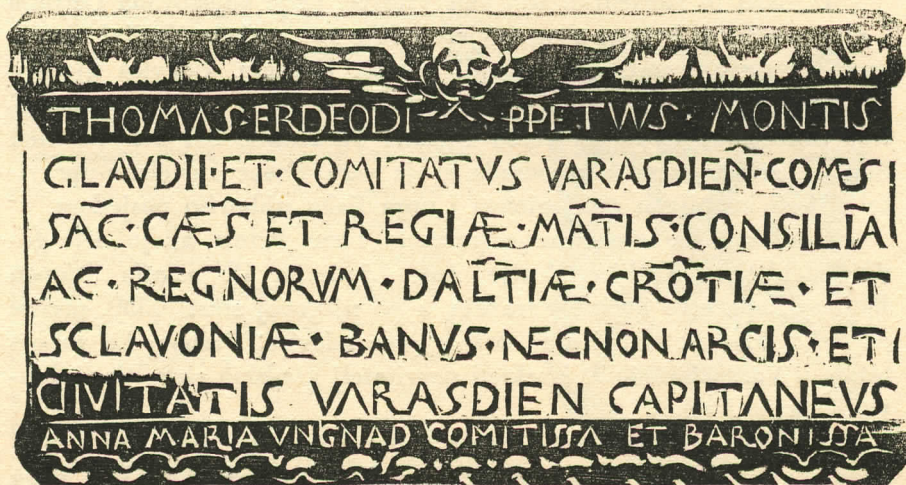 THOMAS·ERDEODI PPETVVS · MONTIS
CLAVDII·ET·COMITATVS VARASDIEÑ·COMES
SAC̄·CÆS̃ ET REGIÆ·MAT̃IS·CONSILIĀ
AC·REGNORVM·DALT̃IÆ·CRÕTIÆ·ET
SCLAVONIÆ·BANVS·NECNON ARCIS·ET
CIVITATIS VARASDIEN CAPITANEVS
ANNA MARIA VNGNAD COMITISSA ET BARONISSA